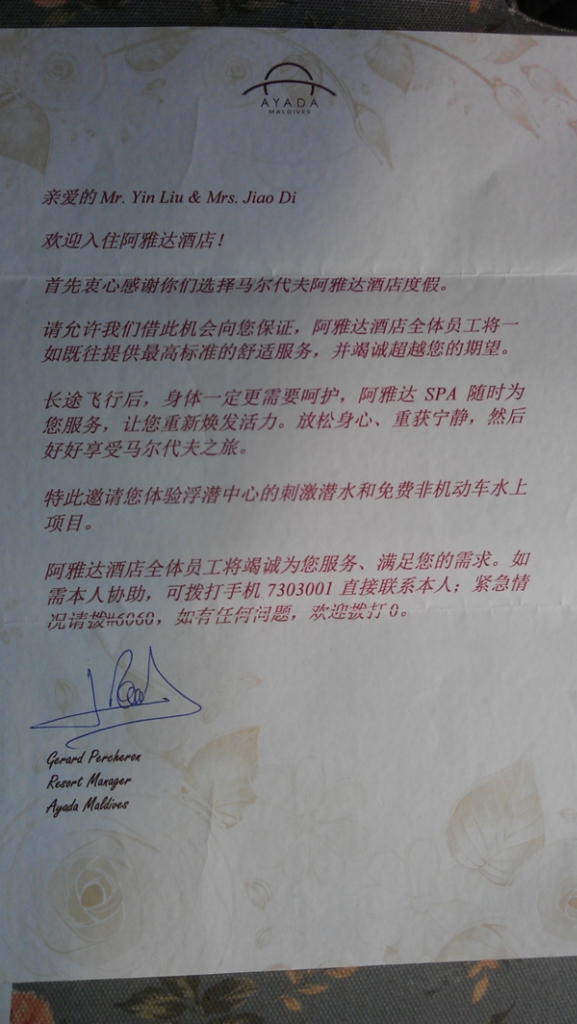 AYADA
MALDIVES
亲爱的 Mr. Yin Liu & Mrs. Jiao Di
欢迎入住阿雅达酒店！
首先衷心感谢你们选择马尔代夫阿雅达酒店度假。
请允许我们借此机会向您保证，阿雅达酒店全体员工将一
如既往提供最高标准的舒适服务，并竭诚超越您的期望。
长途飞行后，身体一定更需要呵护，阿雅达 SPA 随时为
您服务，让您重新焕发活力。放松身心、重获宁静，然后
好好享受马尔代夫之旅。
特此邀请您体验浮潜中心的刺激潜水和免费非机动车水上
项目。
阿雅达酒店全体员工将竭诚为您服务、满足您的需求。如
需本人协助，可拨打手机 7303001 直接联系本人；紧急情
况请拨#6060，如有任何问题，欢迎拨打 0。
Gerard Percheron
Resort Manager
Ayada Maldives